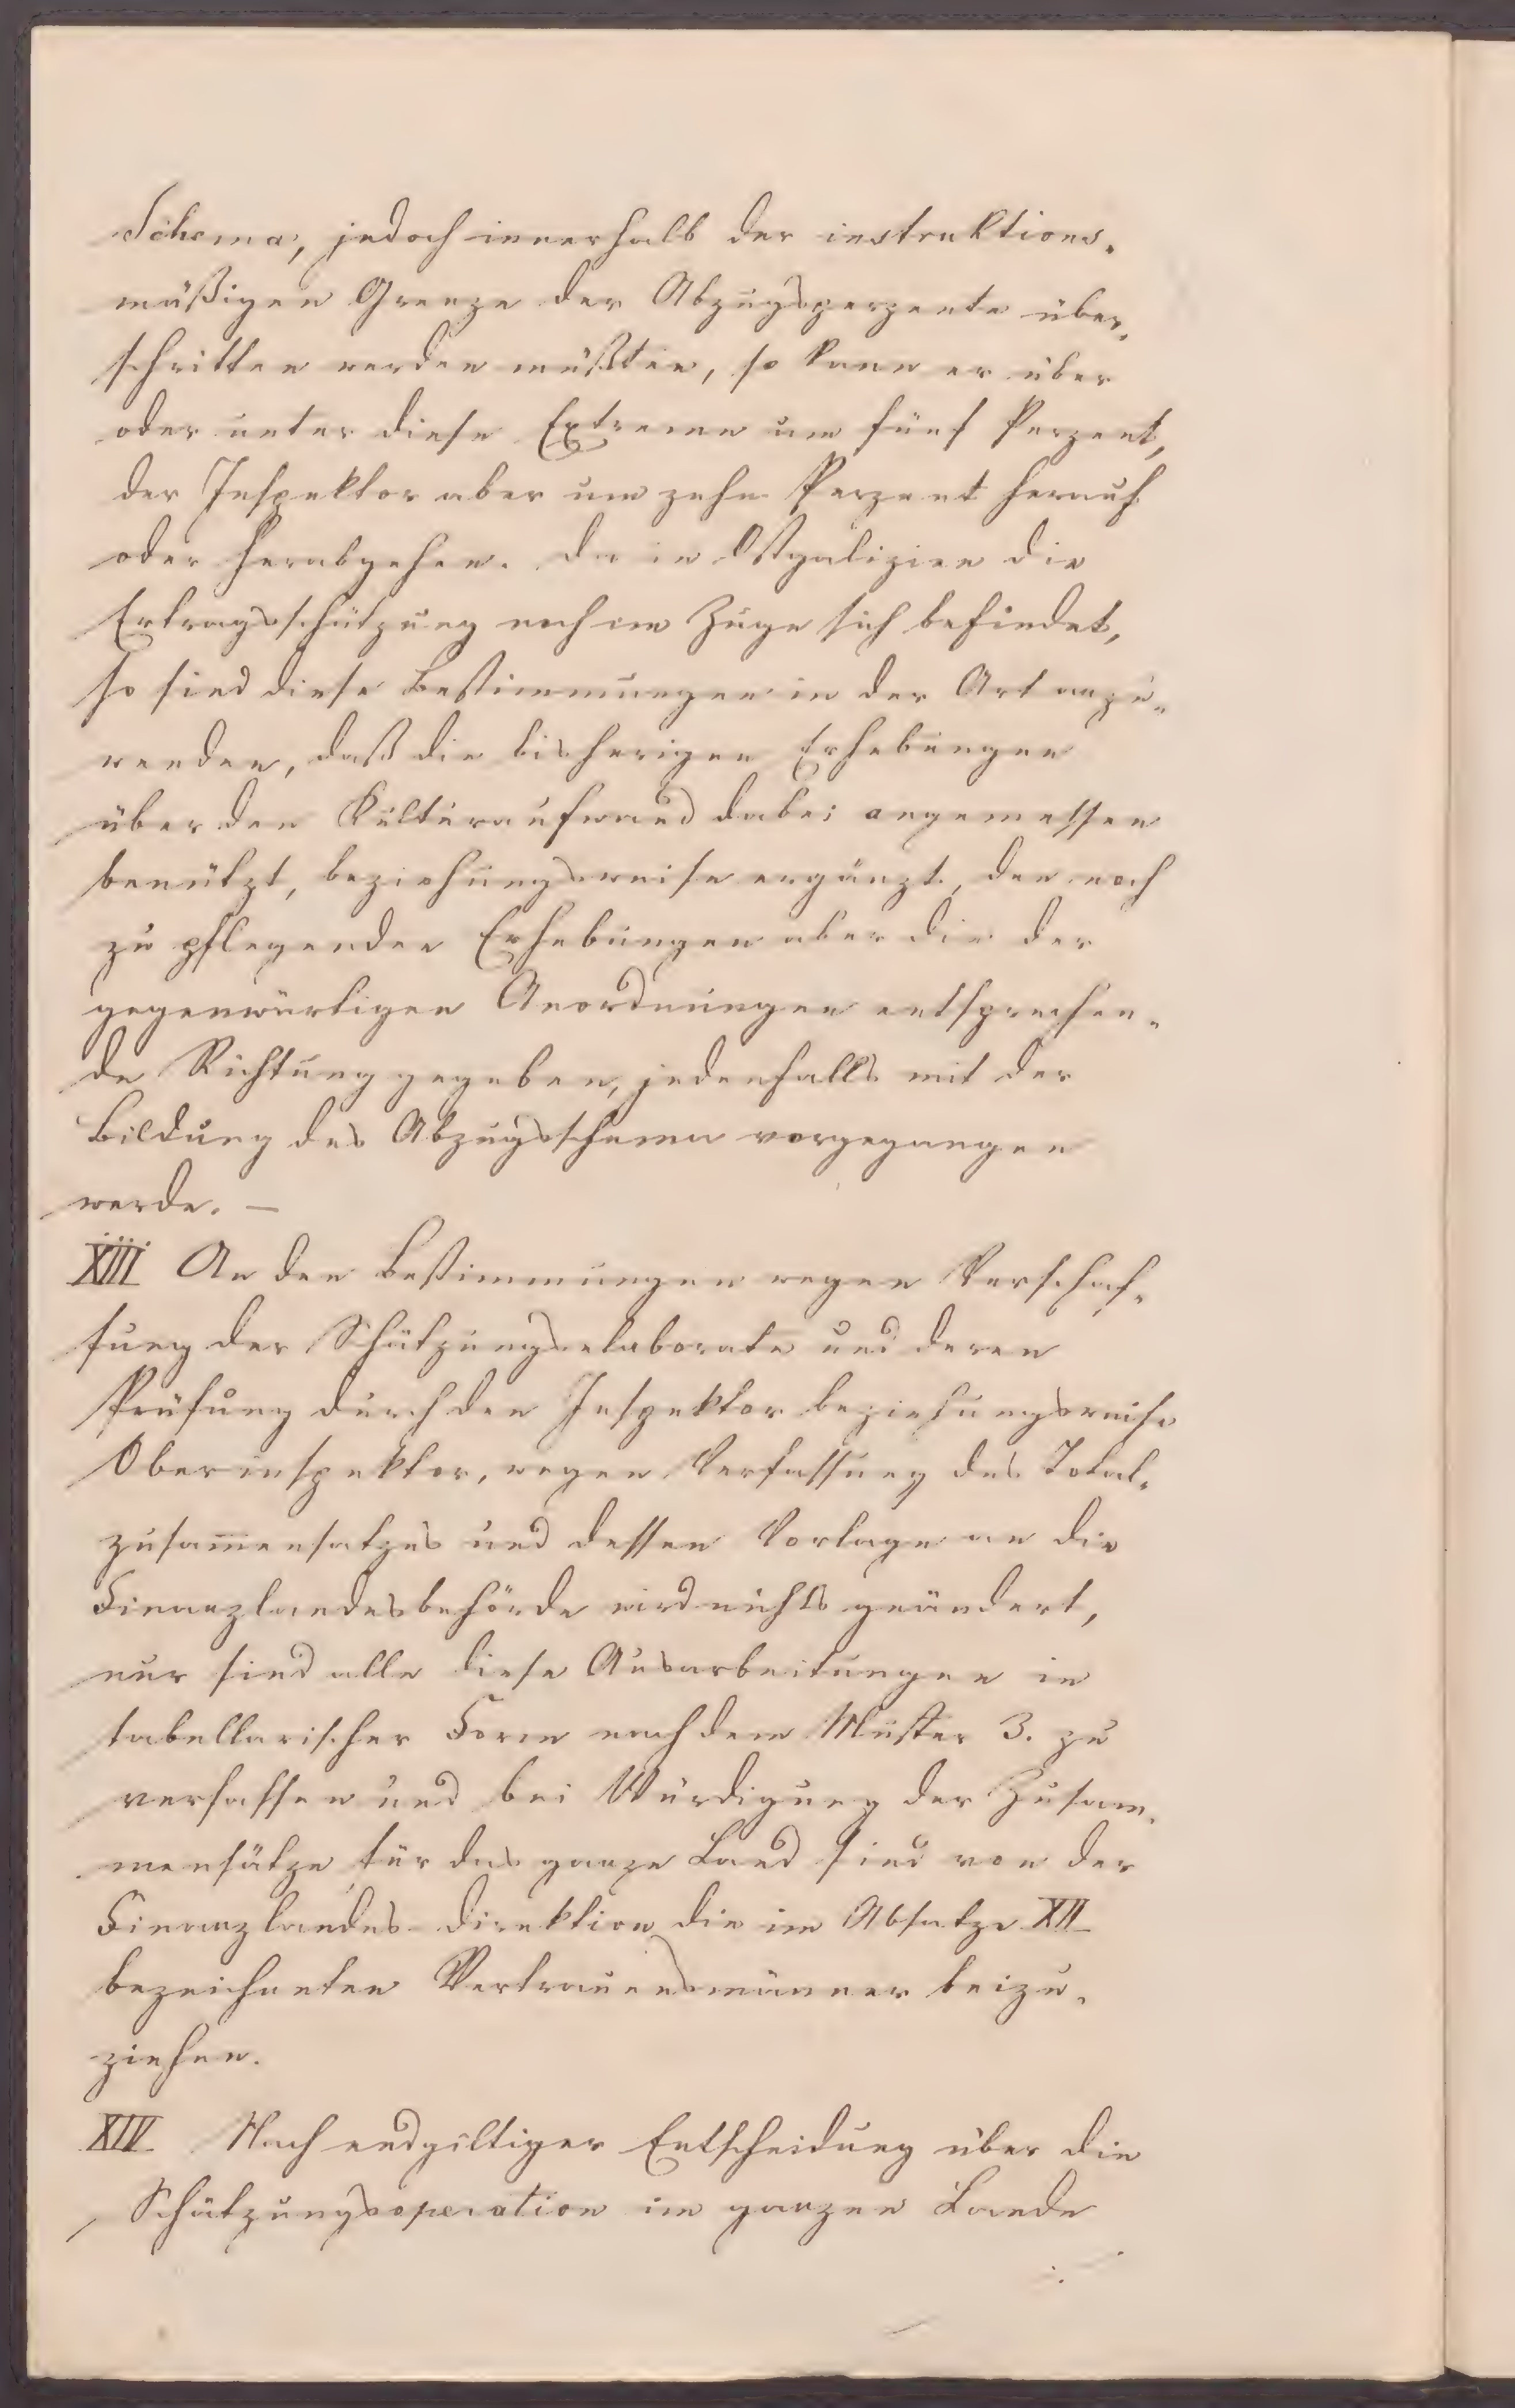 Schema, jedoch innerhalb der instruktions-
mäßigen Grenze der Abzugsperzente über-
schritten werden müßten, so kann er über
oder unter diese Extreme um fünf Perzent,
der Inspektor aber um zehn Perzent herauf
oder herabgehen. Da in Ostgalizien die
Ertragsschätzung noch im Zuge sich befindet,
so sind diese Bestimmungen in der Art anzu-
wenden, daß die bisherigen Erhebungen
über den Kulturaufwand dabei angemessen
benützt, beziehungsweise ergänzt, den noch
zu pflegenden Erhebungen aber die der
gegenwärtigen Anordnungen entsprechen-
de Richtung gegeben, jedenfalls mit der
Bildung des Abzugsschema vorgegangen
werde. —
XIII An den Bestimmungen wegen Verschaf-
fung der Schätzungselaborate und deren
Prüfung durch den Inspektor beziehungsweise
Oberinspektor, wegen Verfassung des Total-
zusam̅ensatzes und dessen Vorlage an die
Finanzlandesbehörde wird nichts geändert,
nur sind alle diese Ausarbeitungen in
tabellarischer Form nach dem Muster 3. zu
verfassen und bei Würdigung der Zusam-
mensätze für das ganze Land sind von der
Finanzlandes-Direktion die im Absatze XII
bezeichneten Vertrauensmänner beizu-
ziehen.
XIV Nach endgiltiger Entscheidung über die
Schätzungsoperation im ganzen Lande